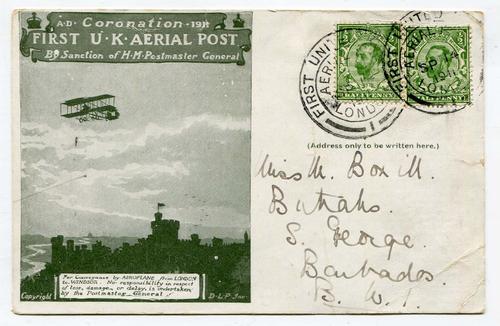 A·D· Coronation ·1911
FIRST U·K·AERIAL POST
By Sanction of H·M·Postmaster General
FIRST UNITED
AERIAL
LONDON
FIRST UNITED
AERIAL
SP 14
1911
LONDON
HALFPENNY
HALFPENNY
(Address only to be written here.)
Miss M. Box ill.
S. George.
Barbados.
B. W. I.
For Conveyance by AEROPLANE from LONDON
to WINDSOR. No responsibility in respect
of loss, damage, or delay, is undertaken
by the Postmaster General
Copyright
D·L·P Inv.